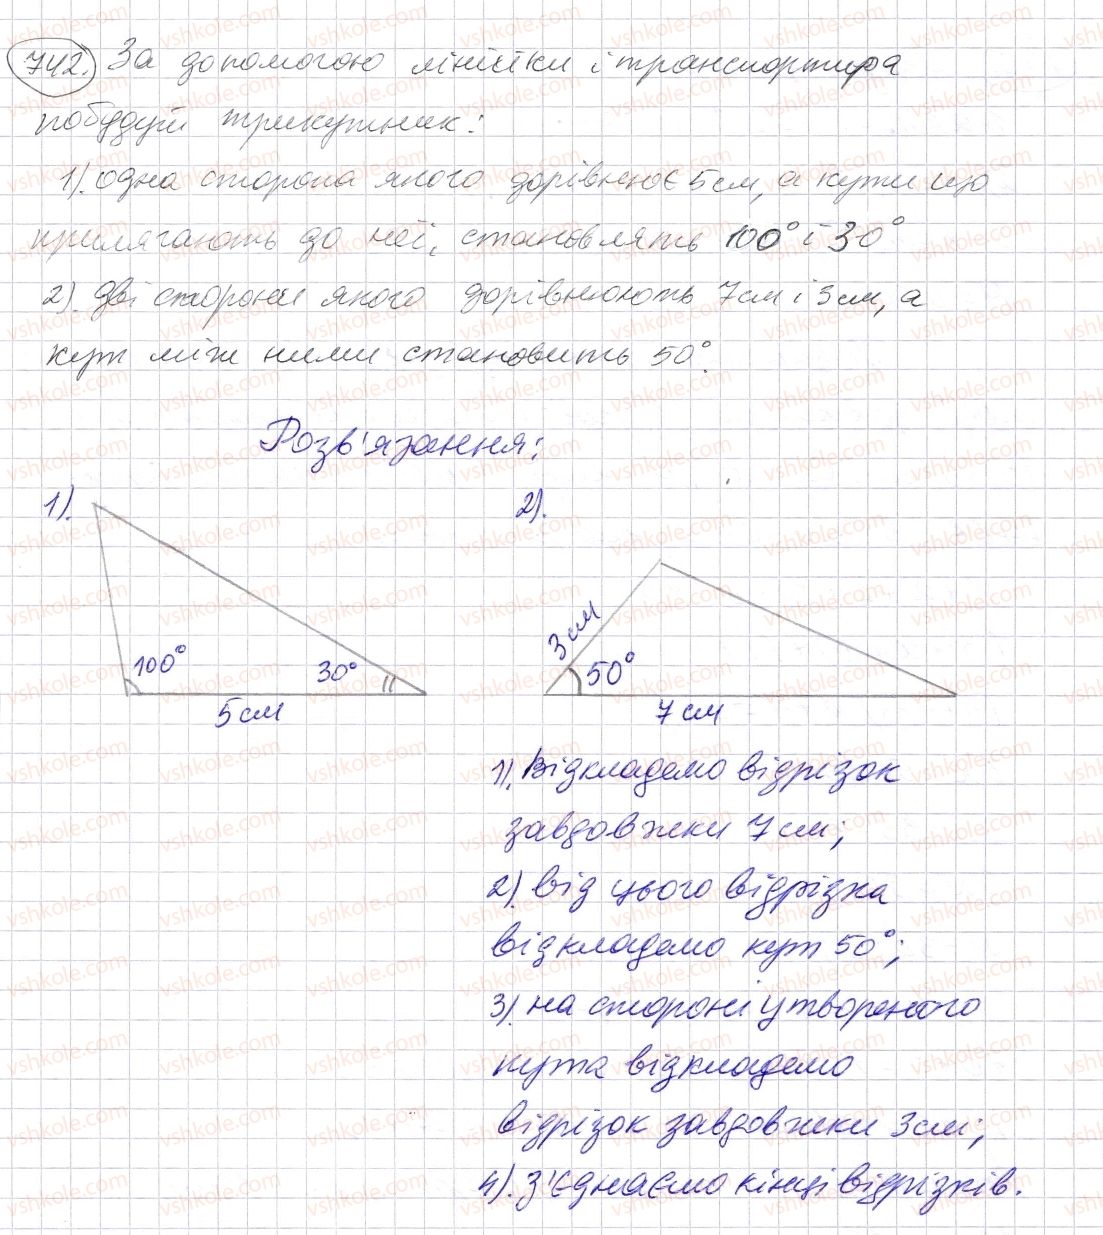 742. За допомогою лінійки і транспортира
побудуй трикутник:
1). одна сторона якого дорівнює 5см, а кути що
прилягають до неї, становлять 100° і 30°
2). дві сторони якого дорівнюють 7см і 3см, а
кут між ними становить 50°.
Розв'язання:
1). 2).
100° 30° 5см
3см 50° 7см
1). Відкладемо відрізок
завдовжки 7см;
2). від цього відрізка
відкладемо кут 50°;
3). на стороні утвореного
кута відкладемо
відрізок завдовжки 3см;
4). з'єднаємо кінці відрізків.
vshkole.com